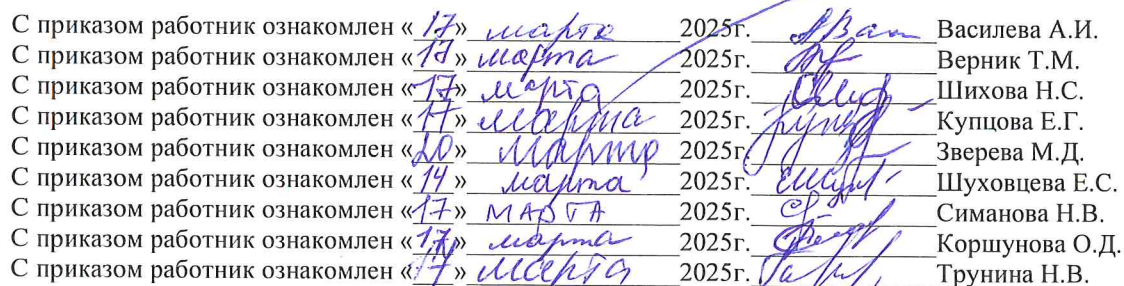 С приказом работник ознакомлен «17» марта 2025г. Василева А.И.
С приказом работник ознакомлен «17» марта 2025г. Верник Т.М.
С приказом работник ознакомлен «17» марта 2025г. Шихова Н.С.
С приказом работник ознакомлен «17» марта 2025г. Купцова Е.Г.
С приказом работник ознакомлен «20» марта 2025г. Зверева М.Д.
С приказом работник ознакомлен «14» марта 2025г. Шуховцева Е.С.
С приказом работник ознакомлен «17» МАРТА 2025г. Симанова Н.В.
С приказом работник ознакомлен «17» марта 2025г. Коршунова О.Д.
С приказом работник ознакомлен «17» марта 2025г. Трунина Н.В.